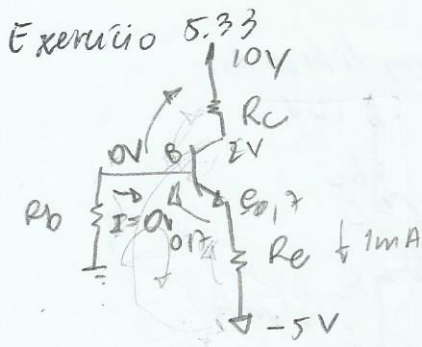 Exercício 5.33
10V
Rc
0V B 2V
Rb I=0
0,7 0,7
Re 1mA
-5V